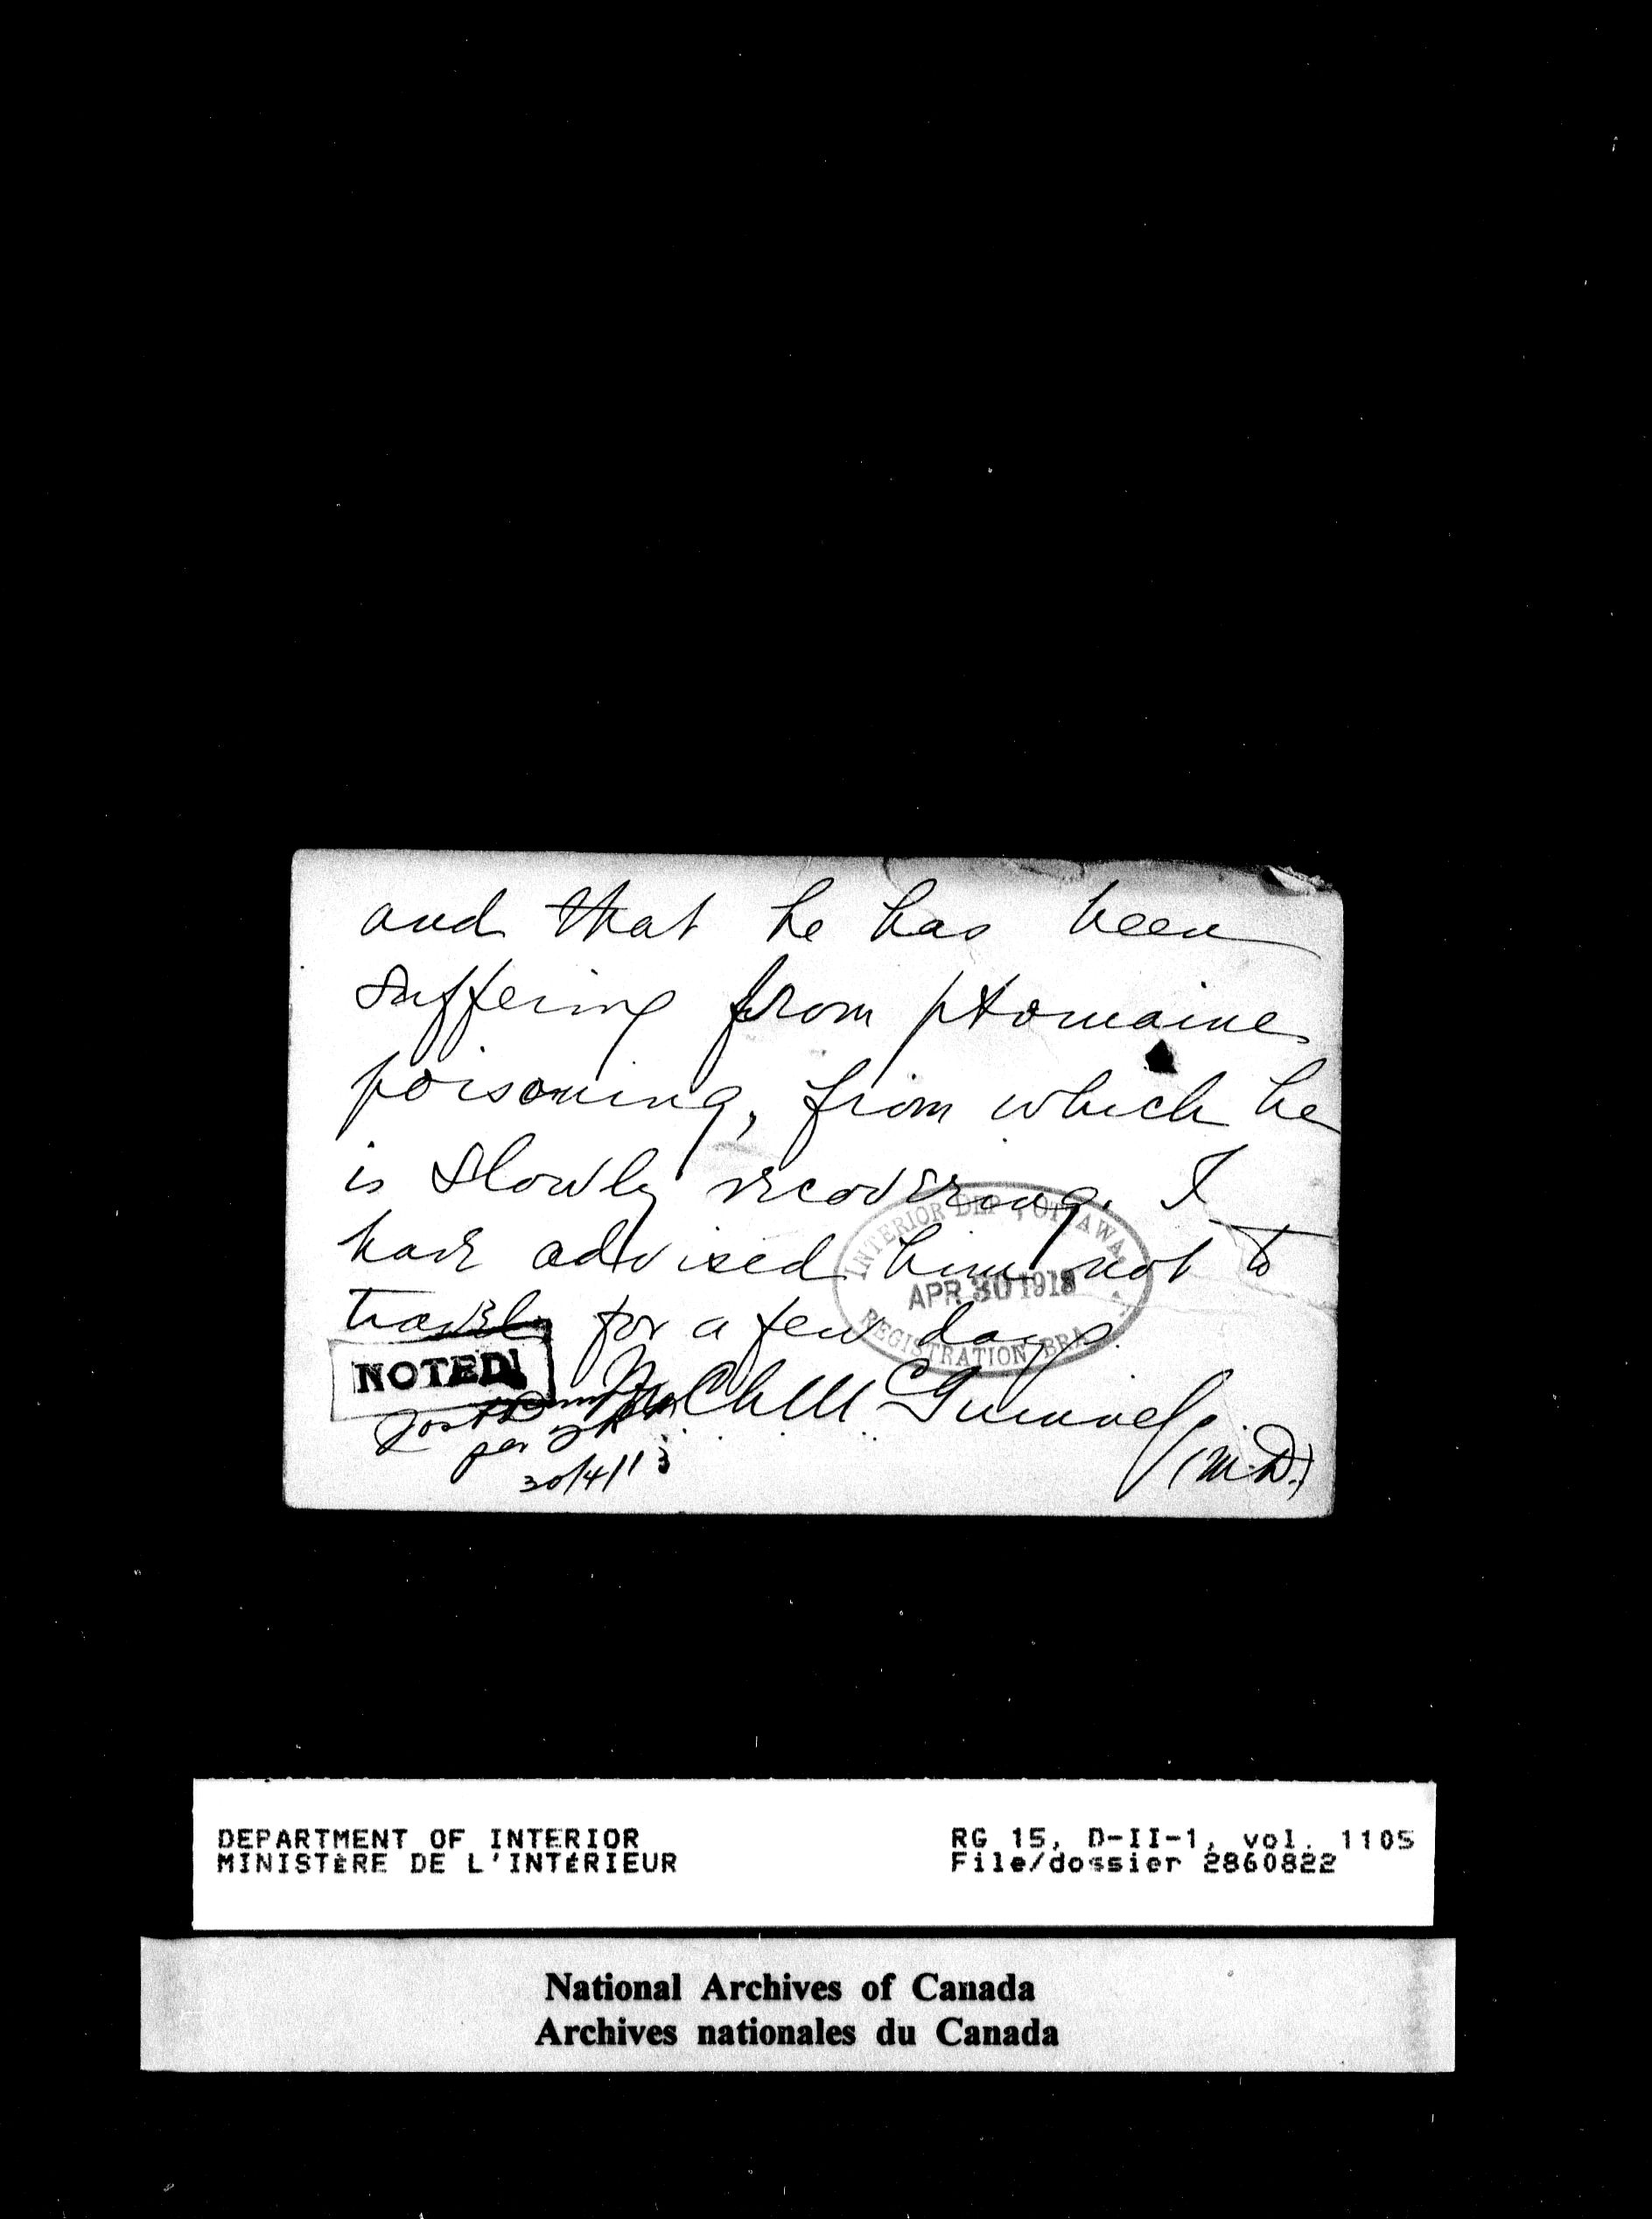 and that he has been
suffering from ptomaine
poisoning, from which he
is slowly recovering. I
have advised him not to
travel for a few days.
INTERIOR DEPT, OTTAWA
APR 30 1913
REGISTRATION BRA
NOTED
per
30/4/13
(M.D.)
DEPARTMENT OF INTERIOR
MINISTÈRE DE L'INTÉRIEUR
RG 15, D-II-1, vol. 1105
File/dossier 2860822
National Archives of Canada
Archives nationales du Canada